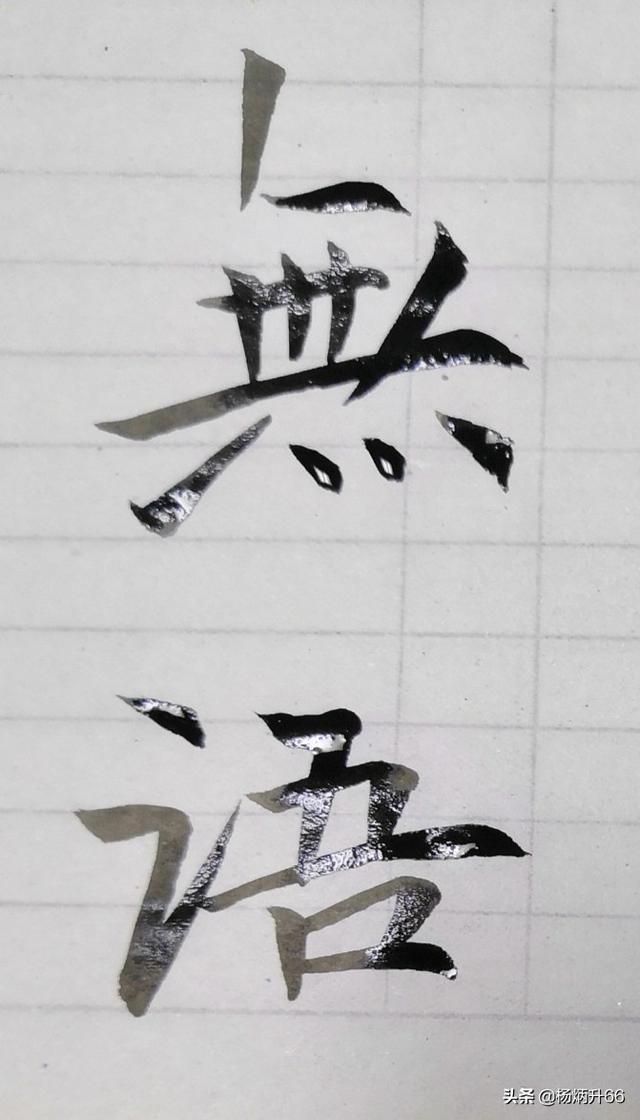 無
语
头条 @杨炳升66